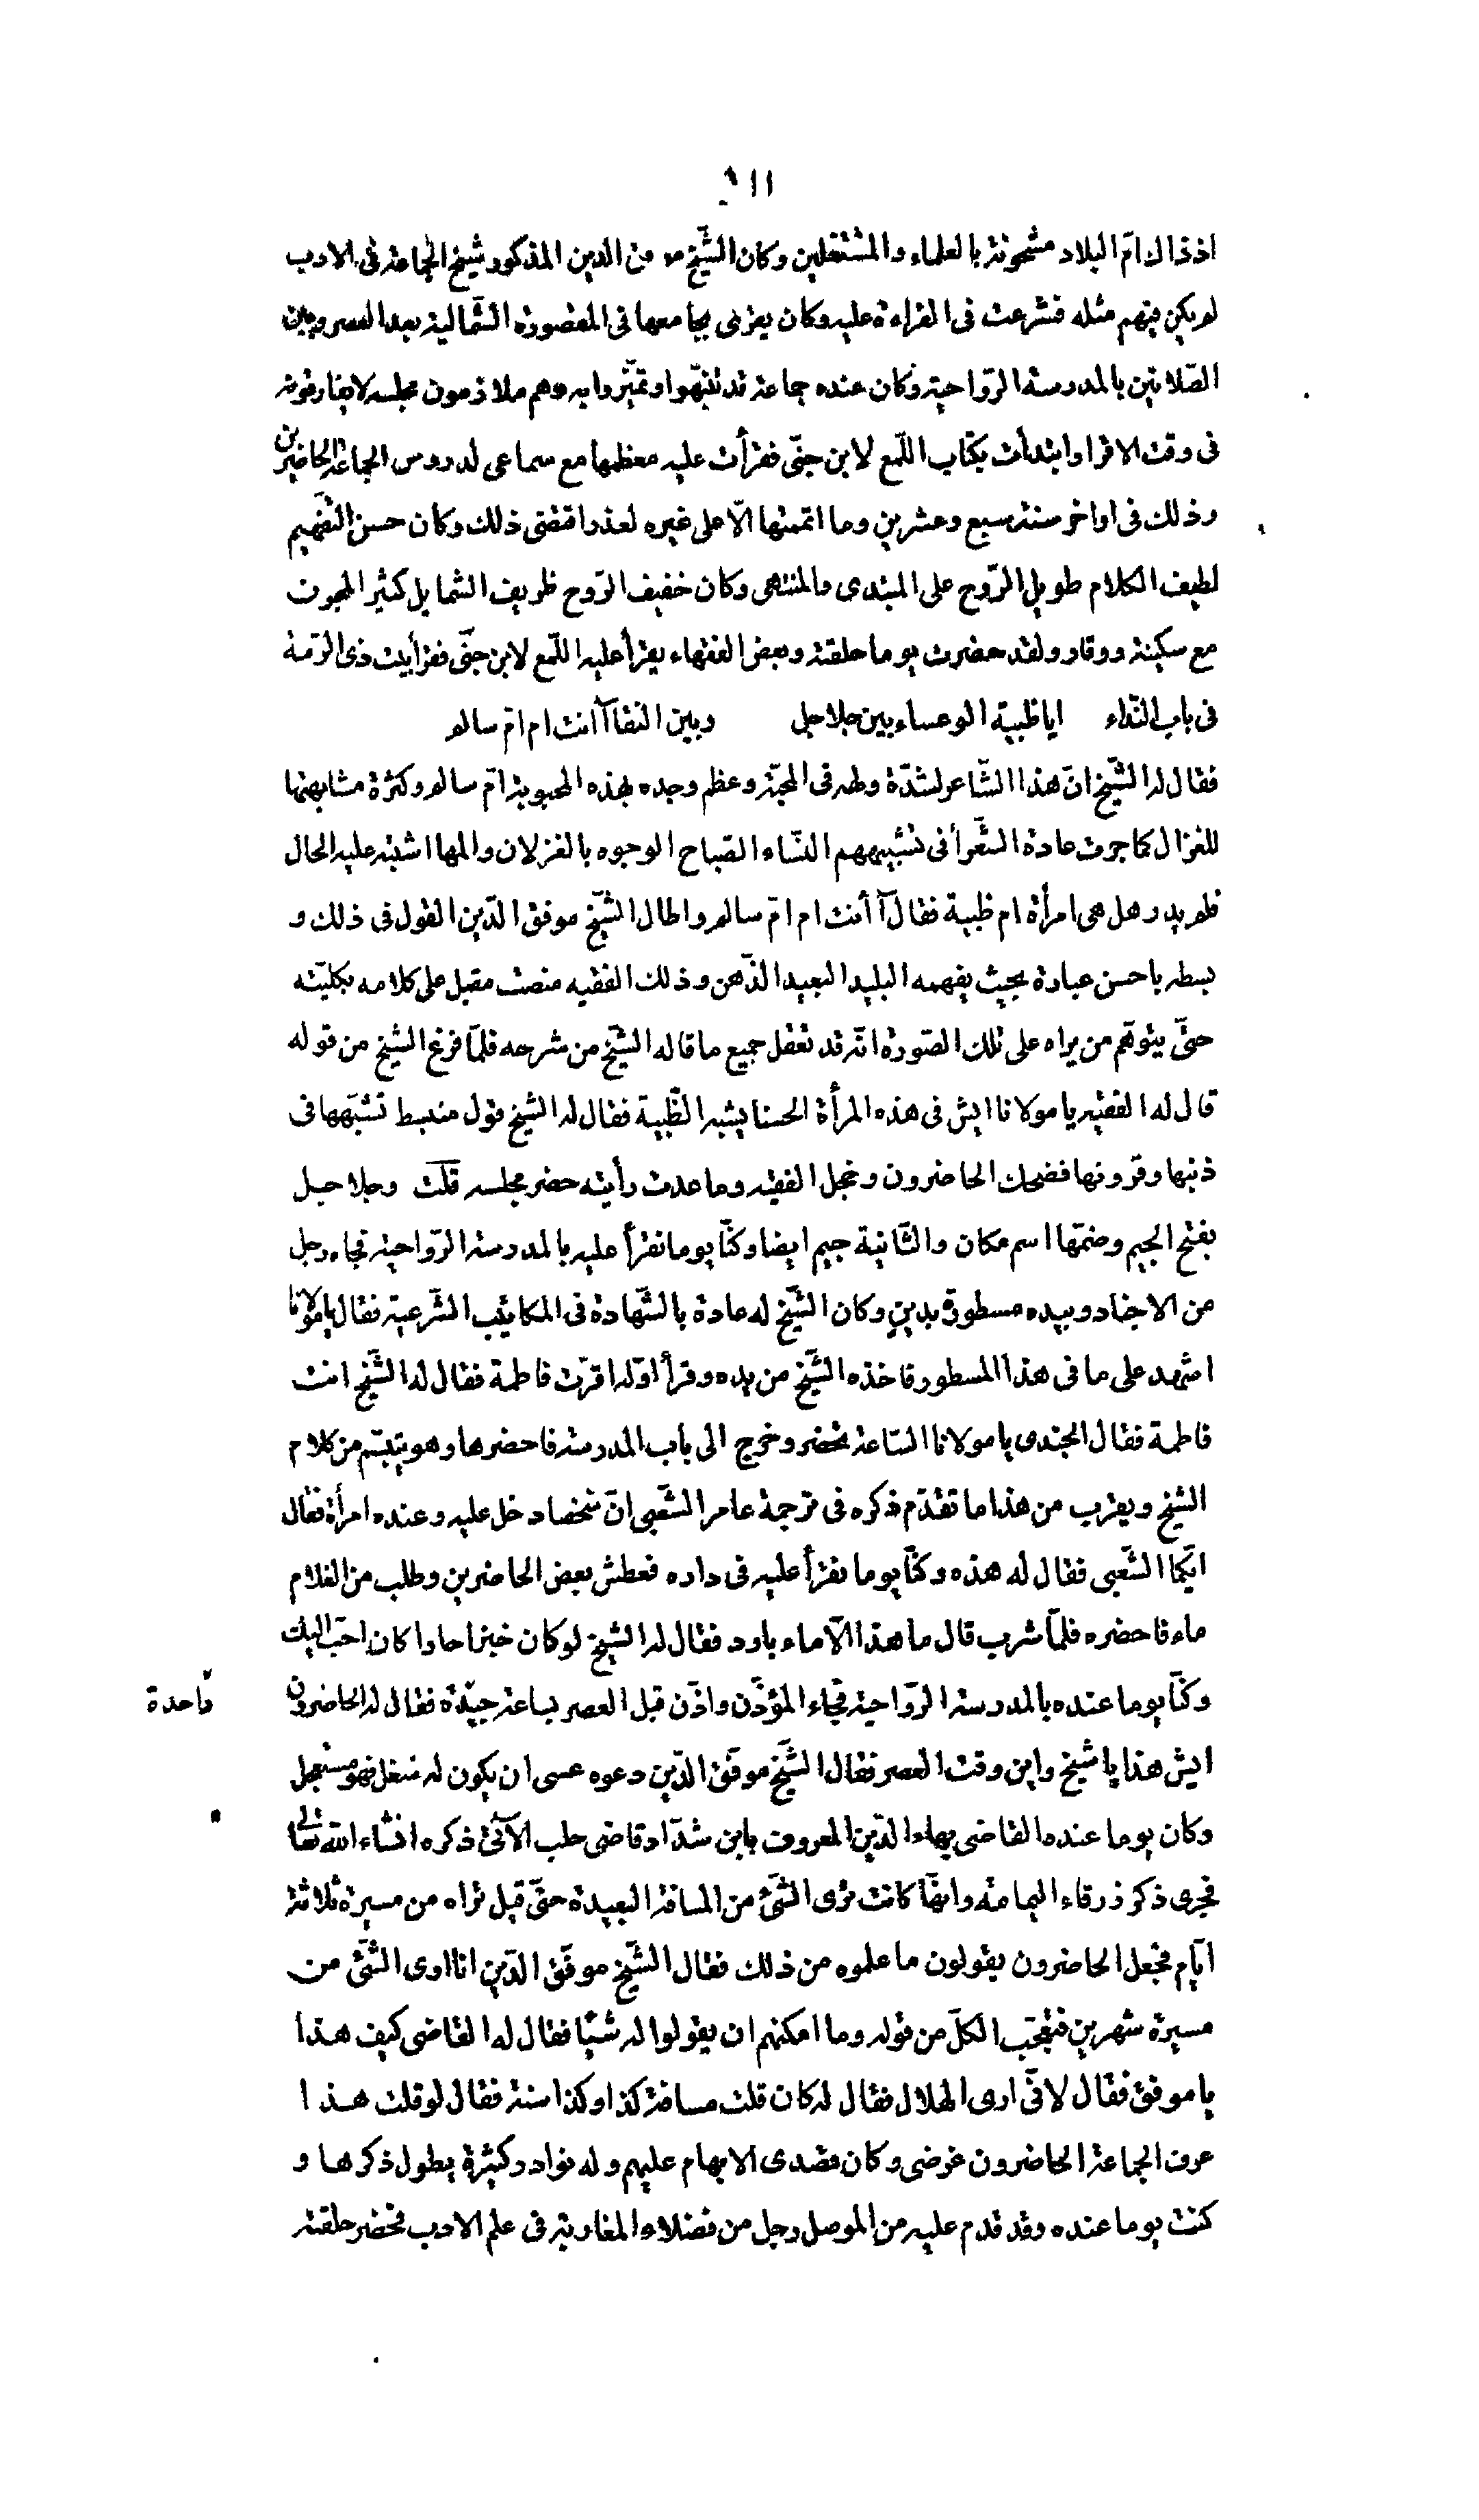 ١١٩
اذ ذاك امّ البلاد مشحونة بالعلماء والمشتغلين وكان الشّيخ موفق الدين المذكور شيخ الجماعة فى الادب
لم يكن فيهم مثله فشرعت فى القراءة عليه وكان يقرئ بجامعها فى المقصورة الشّمالية بعد العصر وبين
الصّلاتين بالمدرسة الرّواحية وكان عنده جماعة قد تنبّهوا وتميّزوا به وهم ملازمون مجلسه لا يفارقونه
فى وقت الاقرا وابتدأت بكتاب اللّمع لابن جنّى فقرأت عليه معظمها مع سماعى لدروس الجماعة الحاضرين
وذلك فى اواخر سنة سبع وعشرين وما اتممتها الّا على غيره لعذر اقتضى ذلك وكان حسن التّفهيم
لطيف الكلام طويل الرّوح على المبتدى والمنتهى وكان خفيف الرّوح ظريف الشمايل كثير المجون
مع سكينة ووقار ولقد حضرت يوما حلقته وبعض الفقهاء يقرأ عليه اللّمع لابن جنّى فقرأ بيت ذى الرّمة
فى باب النّداء ايا ظبية الوعساء بين جلاجل وبين النقا آانت ام امّ سالم
فقال له الشّيخ انّ هذا الشّاعر لشدّة ولهه فى المحبّة وعظم وجده بهذه المحبوبة امّ سالم وكثرة مشابهتها
للغزال كما جرت عادة الشّعرأ فى تشبيههم النّساء الصّباح الوجوه بالغزلان والمها اشتبه عليه الحال
فلم يدر هل هى امرأة ام ظبية فقال آأنت ام امّ سالم واطال الشّيخ موفق الدّين القول فى ذلك و
بسطه باحسن عبارة بحيث يفهمه البليد البعيد الذّهن وذلك الفقيه منصت مقبل على كلامه بكليّته
حتّى يتوهّم من يراه على تلك الصّورة انّه قد تعقل جميع ما قاله الشّيخ من شرحه فلمّا فرغ الشيخ من قوله
قال له الفقيه يا مولانا ايش فى هذه المرأة الحسنا يشبه الظّبية فقال له الشيخ قول منبسط تشبّهها فى
ذنبها وقرونها فضحك الحاضرون وخجل الفقيه وما عدت رأيته حضر مجلسه قلت وجلاجل
بفتح الجيم وضمّها اسم مكان والثّانية جيم ايضا وكنّا يوما نقرأ عليه بالمدرسة الرّواحية فجاء رجل
من الاجناد وبيده مسطورة بدين وكان الشّيخ له عادة بالشّهادة فى المكاتيب الشّرعية فقال يا مولانا
اشهد على ما فى هذا المسطور فاخذه الشّيخ من يده وقرأ اوّله اقرّت فاطمة فقال له الشّيخ انت
فاطمة فقال الجندى يا مولانا السّاعة تحضر وخرج الى باب المدرسة فاحضرها وهو يتبسّم من كلام
الشيخ ويقرب من هذا ما تقدّم ذكره فى ترجمة عامر الشّعبى انّ شخصا دخل عليه وعنده امرأة فقال
ايّكما الشّعبى فقال له هذه وكنّا يوما نقرأ عليه فى داره فعطش بعض الحاضرين وطلب من الغلام
ماء فاحضره فلمّا شرب قال ما هذا الّا ماء بارد فقال له الشيخ لو كان خبزا حارا كان احبّ اليك
وكنّا يوما عنده بالمدرسة الرّواحية فجاء المؤذّن واذّن قبل العصر بساعة جيّدة فقال له الحاضرون
واحدة
ايش هذا يا شيخ واين وقت العصر فقال الشّيخ موفّق الدّين دعوه عسى ان يكون له شغل فهو مستعجل
وكان يوما عنده القاضى بهاء الدّين المعروف بابن شدّاد قاضى حلب الآتى ذكره انشاء الله تعالى
فجرى ذكر زرقاء اليمامة وانّها كانت ترى الشّئ من المسافة البعيدة حتّى قيل تراه من مسيرة ثلاثة
ايّام فجعل الحاضرون يقولون ما علموه من ذلك فقال الشّيخ موفّق الدّين انا ارى الشّئ من
مسيرة شهرين فتعجّب الكلّ من قوله وما امكنهم ان يقولوا له شيئا فقال له القاضى كيف هذا
يا موفق فقال لانّى ارى الهلال فقال له كان قلت مسافة كذا وكذا سنة فقال لو قلت هذا
عرف الجماعة الحاضرون غرضى وكان قصدى الابهام عليهم وله نوادر كثيرة يطول ذكرها و
كنت يوما عنده وقد قدم عليه من الموصل رجل من فضلاء المغاربة فى علم الادب فحضر حلقته